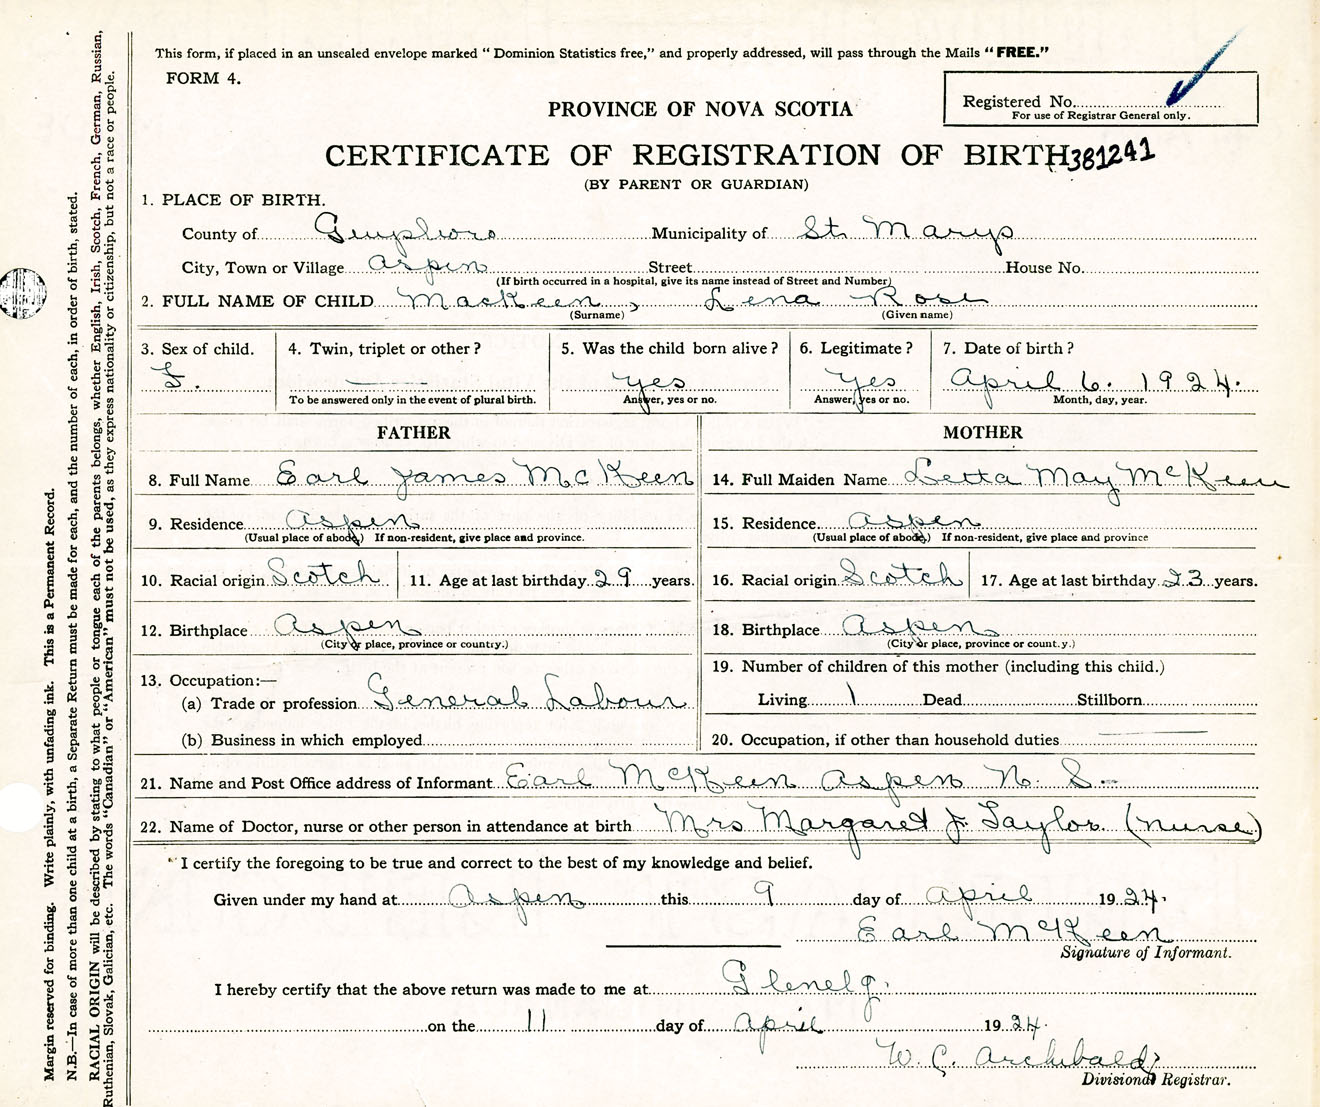 This form, if placed in an unsealed envelope marked "Dominion Statistics free," and properly addressed, will pass through the Mails "FREE."
FORM 4.
Registered No.
For use of Registrar General only.
PROVINCE OF NOVA SCOTIA
CERTIFICATE OF REGISTRATION OF BIRTH 381241
(BY PARENT OR GUARDIAN)
1. PLACE OF BIRTH.
County of Guysboro Municipality of St. Marys
City, Town or Village Aspen Street House No.
(If birth occurred in a hospital, give its name instead of Street and Number)
2. FULL NAME OF CHILD MacKeen, Lena Rose
(Surname) (Given name)
3. Sex of child. 4. Twin, triplet or other? 5. Was the child born alive? 6. Legitimate? 7. Date of birth?
F. yes Yes April 6. 1924.
To be answered only in the event of plural birth. Answer, yes or no. Answer, yes or no. Month, day, year.
FATHER MOTHER
8. Full Name Earl James McKeen 14. Full Maiden Name Letta May McKeen
9. Residence Aspen 15. Residence. Aspen
(Usual place of abode.) If non-resident, give place and province. (Usual place of abode.) If non-resident, give place and province
10. Racial origin Scotch 11. Age at last birthday 29 years. 16. Racial origin Scotch 17. Age at last birthday 23 years.
12. Birthplace Aspen 18. Birthplace Aspen
(City or place, province or country.) (City or place, province or count.y.)
19. Number of children of this mother (including this child.)
13. Occupation:—
(a) Trade or profession General Labour Living 1 Dead Stillborn
(b) Business in which employed 20. Occupation, if other than household duties
21. Name and Post Office address of Informant Earl McKeen Aspen N. S.
22. Name of Doctor, nurse or other person in attendance at birth Mrs Margaret J. Taylor. (nurse)
I certify the foregoing to be true and correct to the best of my knowledge and belief.
Given under my hand at Aspen this 9 day of April 1924.
Earl McKeen
Signature of Informant.
I hereby certify that the above return was made to me at Glenelg.
on the 11 day of April 1924.
W. C. Archibald
Divisional Registrar.
Margin reserved for binding. Write plainly, with unfading ink. This is a Permanent Record.
N.B.—In case of more than one child at a birth, a Separate Return must be made for each, and the number of each, in order of birth, stated.
RACIAL ORIGIN will be described by stating to what people or tongue each of the parents belongs, whether English, Irish, Scotch, French, German, Russian,
Ruthenian, Slovak, Galician, etc. The words "Canadian" or "American" must not be used, as they express nationality or citizenship, but not a race or people.